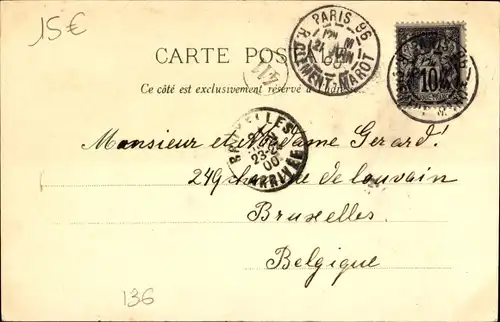 15€
CARTE POS
Ce côté est exclusivement réservé à
PARIS 96
21
R. CLÉMENT-MAROT
10
BRUXELLES
23-24
00
ARRIVÉE
Monsieur et Madame Gerard
249 chaussée de louvain
Bruxelles.
Belgique
136